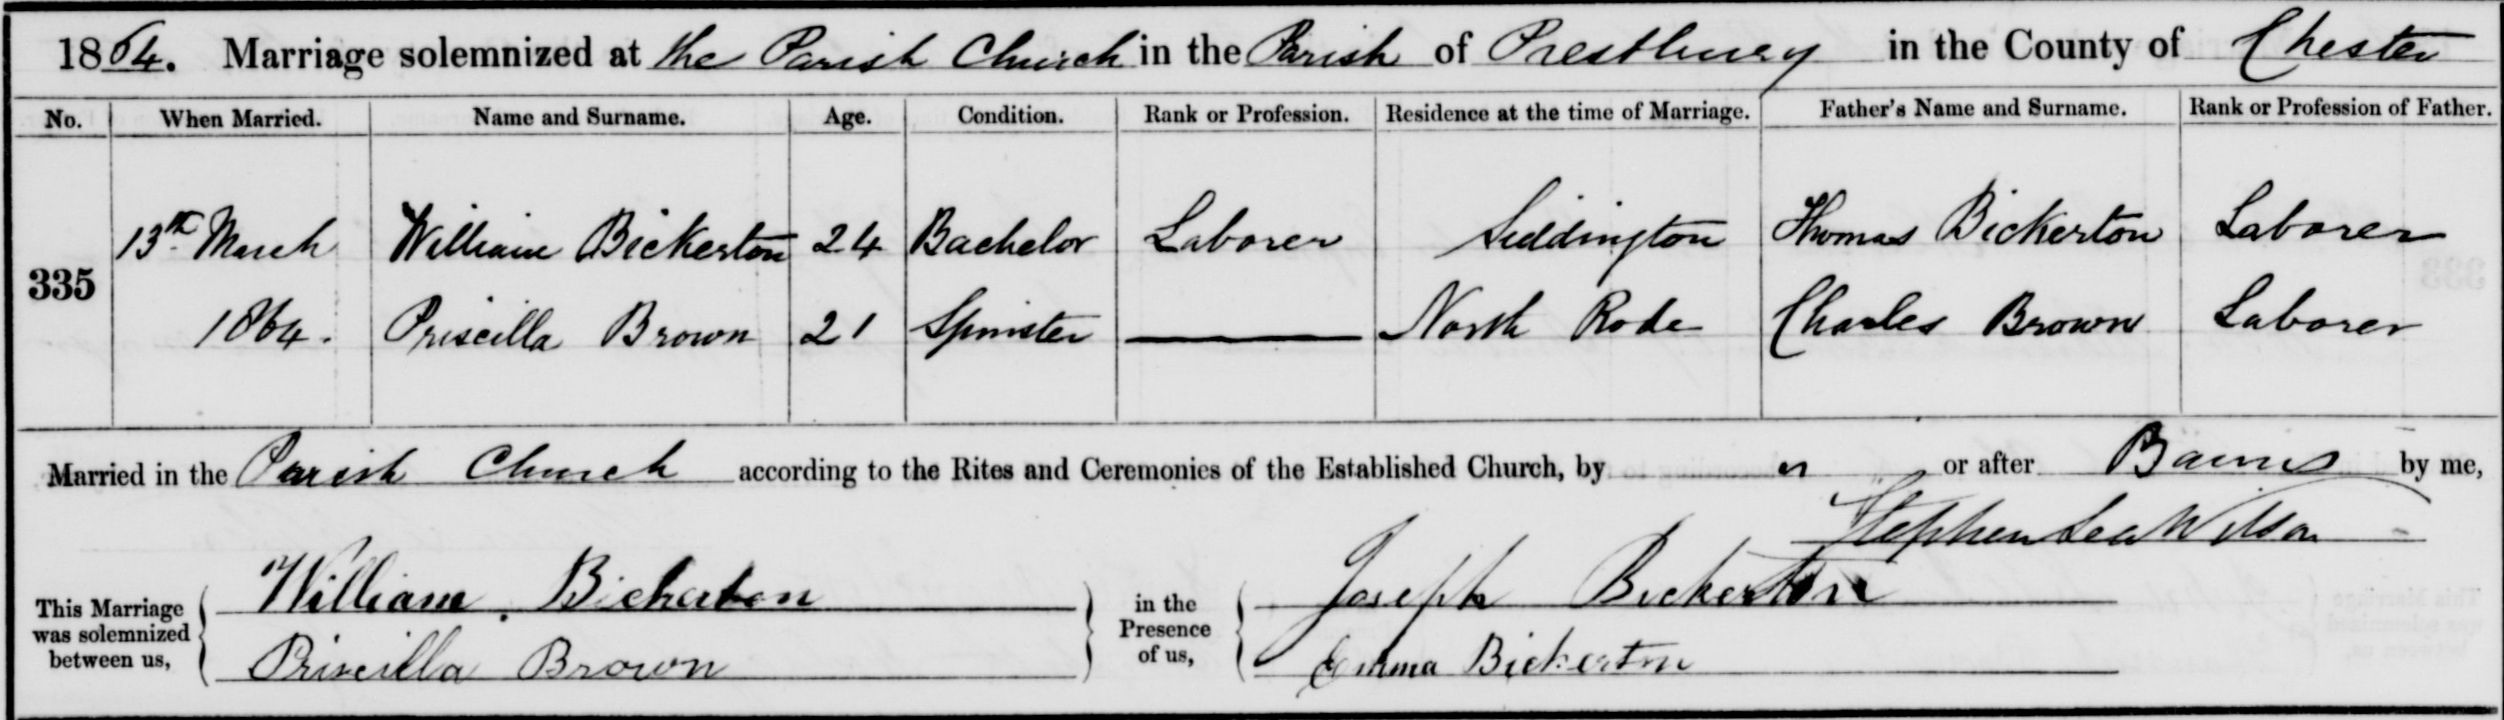 1864. Marriage solemnized at the Parish Church in the Parish of Prestbury in the County of Chester
No. When Married. Name and Surname. Age. Condition. Rank or Profession. Residence at the time of Marriage. Father's Name and Surname. Rank or Profession of Father.
13th March William Bickerton 24 Bachelor Laborer Siddington Thomas Bickerton Laborer
335
1864. Priscilla Brown 21 Spinster North Rode Charles Brown Laborer
Married in the Parish Church according to the Rites and Ceremonies of the Established Church, by or after Banns by me,
Stephen Lea Wilson
This Marriage was solemnized between us,
William Bickerton
Priscilla Brown
in the Presence of us,
Joseph Bickerton
Emma Bickerton